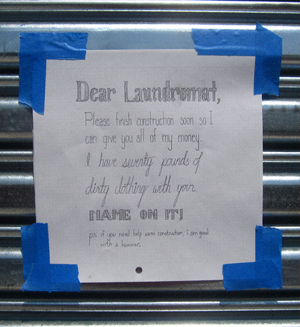 Dear Laundromat,
Please finish construction soon so I
can give you all of my money.
I have seventy pounds of
dirty clothing with your
NAME ON IT!
p.s. if you need help with construction, I am good
with a hammer.